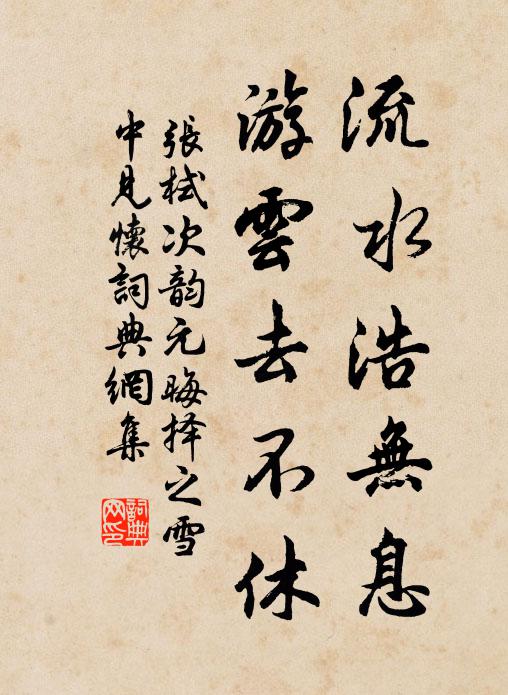 流水浩無息
游雲去不休
張栻次韵元晦择之雪
中見懷詞典網集
詞典网印